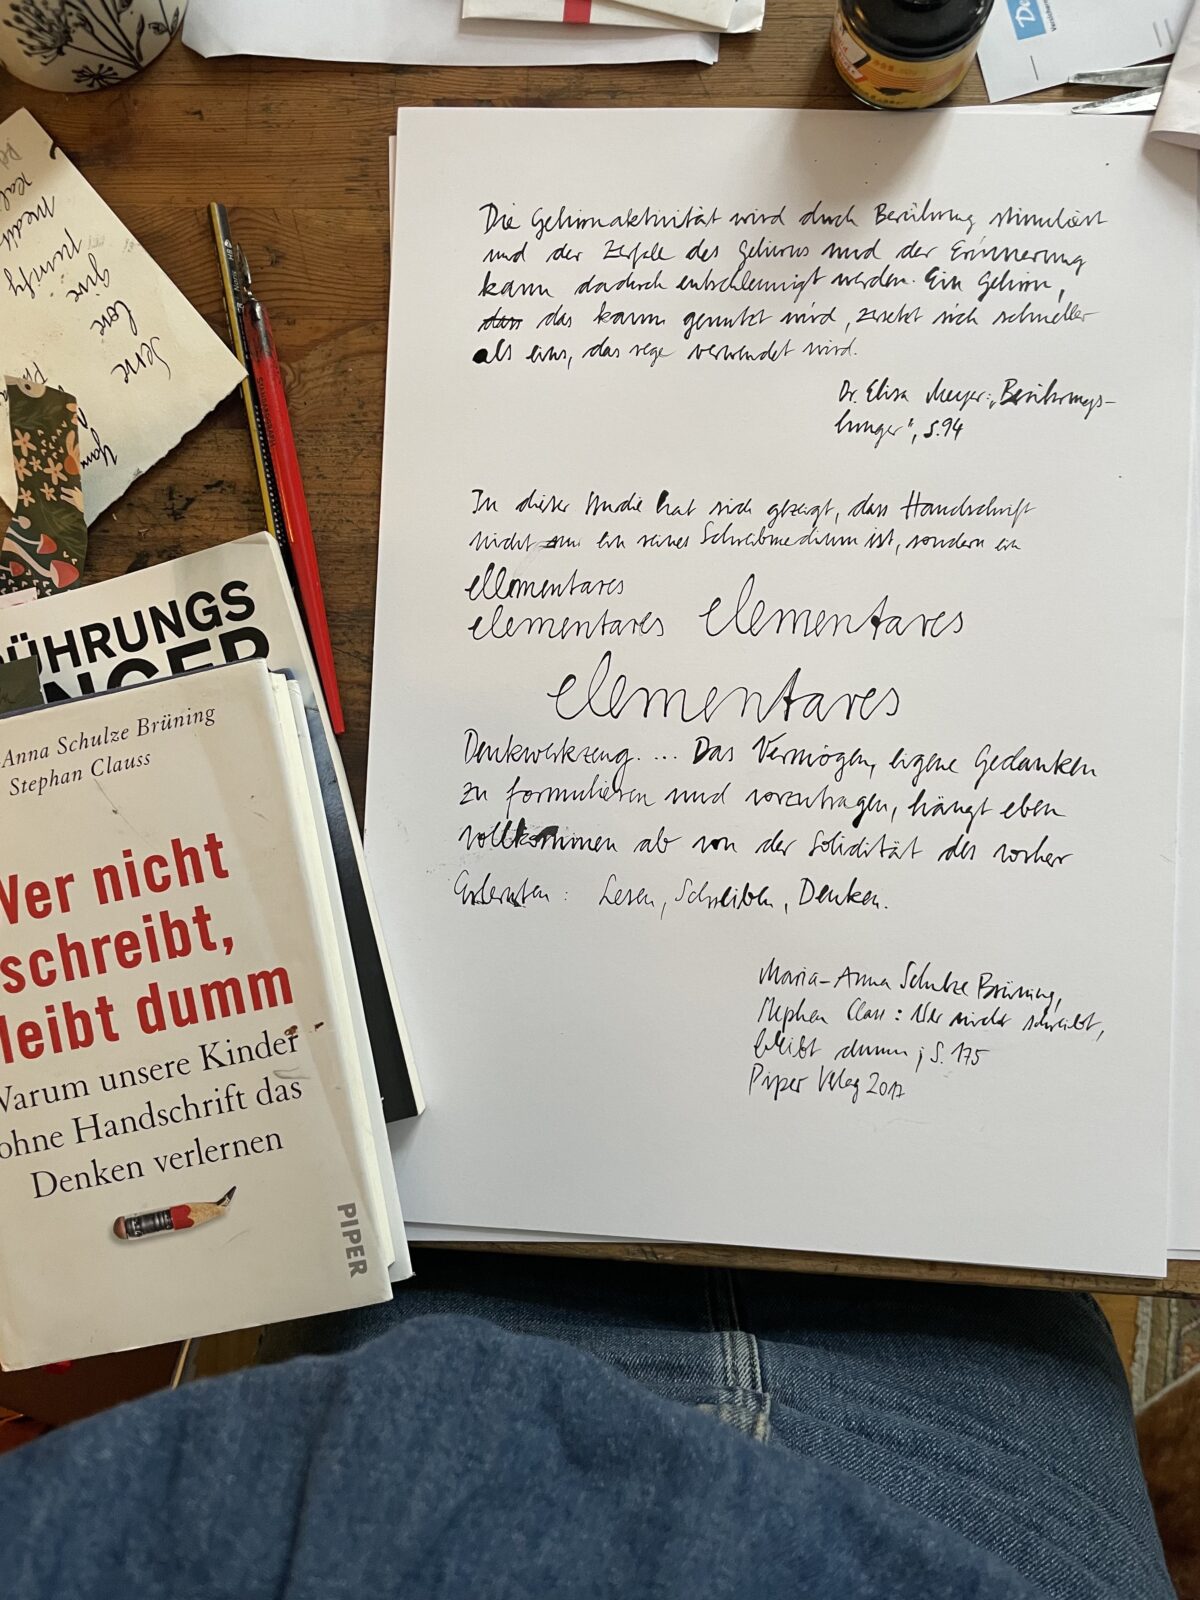 Die Gehirnaktivität wird durch Berührung stimuliert
und der Zerfall des Gehirns und der Erinnerung
kann dadurch entschleunigt werden. Ein Gehirn,
dass das kaum genutzt wird, zersetzt sich schneller
als eins, das rege verwendet wird.
Dr. Elisa Meyer: „Berührungs-
hunger“, S. 94
In dieser Studie hat sich gezeigt, dass Handschrift
nicht ein reines Schreibmedium ist, sondern ein
ellementares
elementares elementares
elementares
Denkwerkzeug. ... Das Vermögen, eigene Gedanken
zu formulieren und vorzutragen, hängt eben
vollkommen ab von der Solidität des vorher
Erlernten: Lesen, Schreiben, Denken.
Maria-Anna Schulze Brüning,
Stephan Clauss: Wer nicht schreibt,
bleibt dumm; S. 175
Piper Verlag 2017
ÜHRUNGS
NGER
Anna Schulze Brüning
Stephan Clauss
Wer nicht
schreibt,
leibt dumm
Warum unsere Kinder
ohne Handschrift das
Denken verlernen
PIPER
Serve
love
give
purify